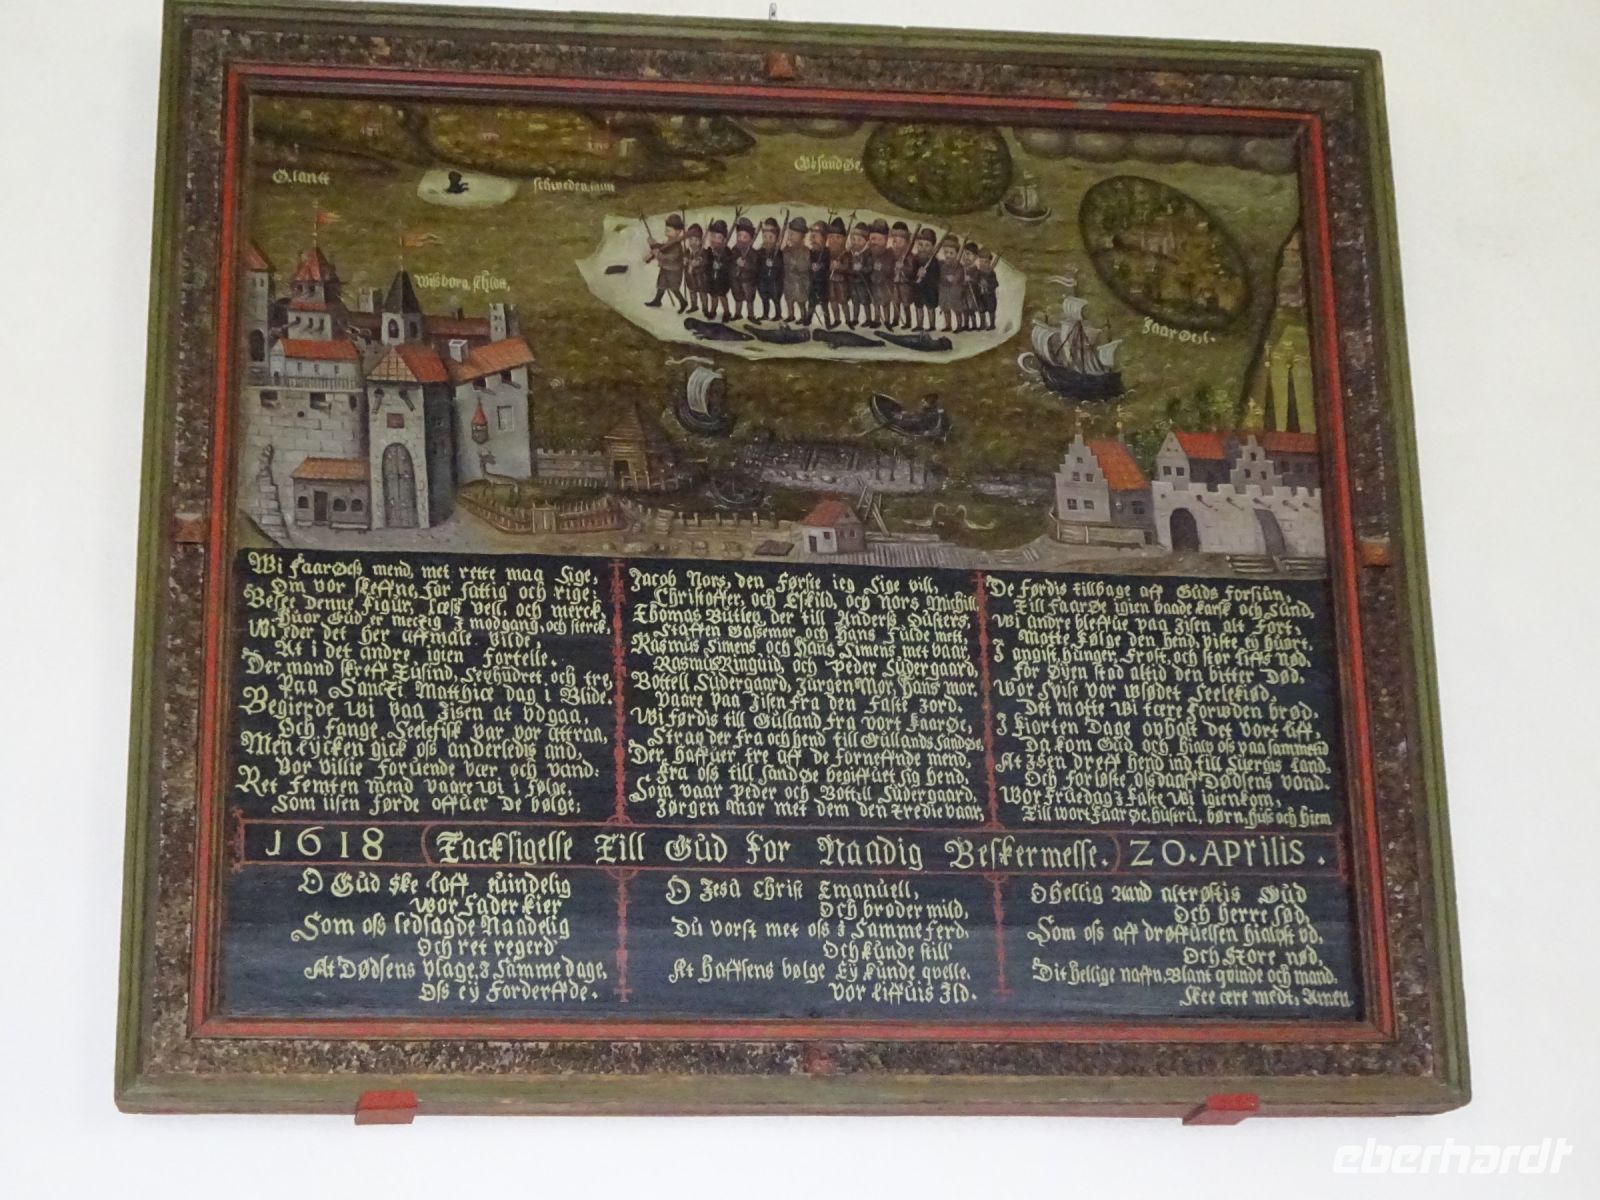 O.lantt
schweden
Wisborg schlos,
Faar Øen.
Wi FaarØess mend, met rette maa sige,
Om vor skeffne, for fattig och rige;
Besee denne Figur, læss vell, och merck,
Huor Gud er mectig I modgang, och sterck,
Wi eder det her affmale vilde
At i det andre igien fortelle.
Der mand skreff Tusind, Sexhudret, och tre,
Paa Sancti Matthiæ dag i Blide.
Begierde wi paa Iisen at udgaa,
Och fange Seelefisk var vor attraa,
Men lycken gick oss anderledis and,
Vor villie foruende vær och vand:
Ret Femten mend vaare wi i følge,
Som iisen førde offuer De bølge;
Jacob Nors, den Første ieg sige vill,
Christoffer, och Eskild, och Nors Michill,
Thomas Butley, der till Anders Dusters,
Staffen Gassemor, och Hans Fulde mett,
Rasmus Simens, och Hans Simens met vaar,
Rasmus Ringuid, och Peder Sudergaard,
Bottell Sudergaard, Jurgen Mor, Hans mor.
Vaare paa Iisen fra den Faste Jord.
Wi førdis till Gulland fra vort FaarØe,
Strag der fra och hend till Gullands SandØe,
Der haffuer tre aff de forneffnde mend,
Fra oss till Sand Øe begiffuet sig hend,
Som vaar Peder och Bottell Sudergaard,
Jørgen mor met dem den tredie vaar,
De førdis tillbage aff Guds forsiun,
Till FaarØe igien baade karsk och sund,
Wi andre bleffue paa Iisen alt fort,
Motte følge den hend, viste ey huort.
I angist, hunger, Frost, och stor liffs nød.
For Øyen stad altid den bitter Død.
Wor Spise vor usødet Seelekiød,
Det motte wi tære forwden brød.
I fiorten Dage opholt det vort liff,
Da kom Gud och hialp oss paa sammetid
At Isen dreff hend ind till Suergis Land,
Och forløste oss da aff Dødsens vond.
Wor Fruedag I Faste wi igienkom,
Till wort Faar Øe, hustru, børn, huss och hiem
1618 Tacksigelse Till Gud for Naadig Beskermelse. 20. APRILIS.
O Gud ske loff euindelig
Wor Fader kier
Som oss ledsagde Naadelig
Och ret regerd
At Dødsens plage, I samme dage,
Oss ey Forderffde.
O Jesu Christ Emanuell,
Och broder mild,
Du vorst met oss I samme ferd,
Och kunde still
At Haffsens bølge Ey kunde quelle.
Vor liffuis Ild.
O Hellig Aand altrøstis Gud
Och herre sød,
Som oss aff drøffuelsen hialpst ud,
Och Store nød,
Dit hellige naffn, Blant quinde och mand.
Skee ære medt, Amen
eberhardt